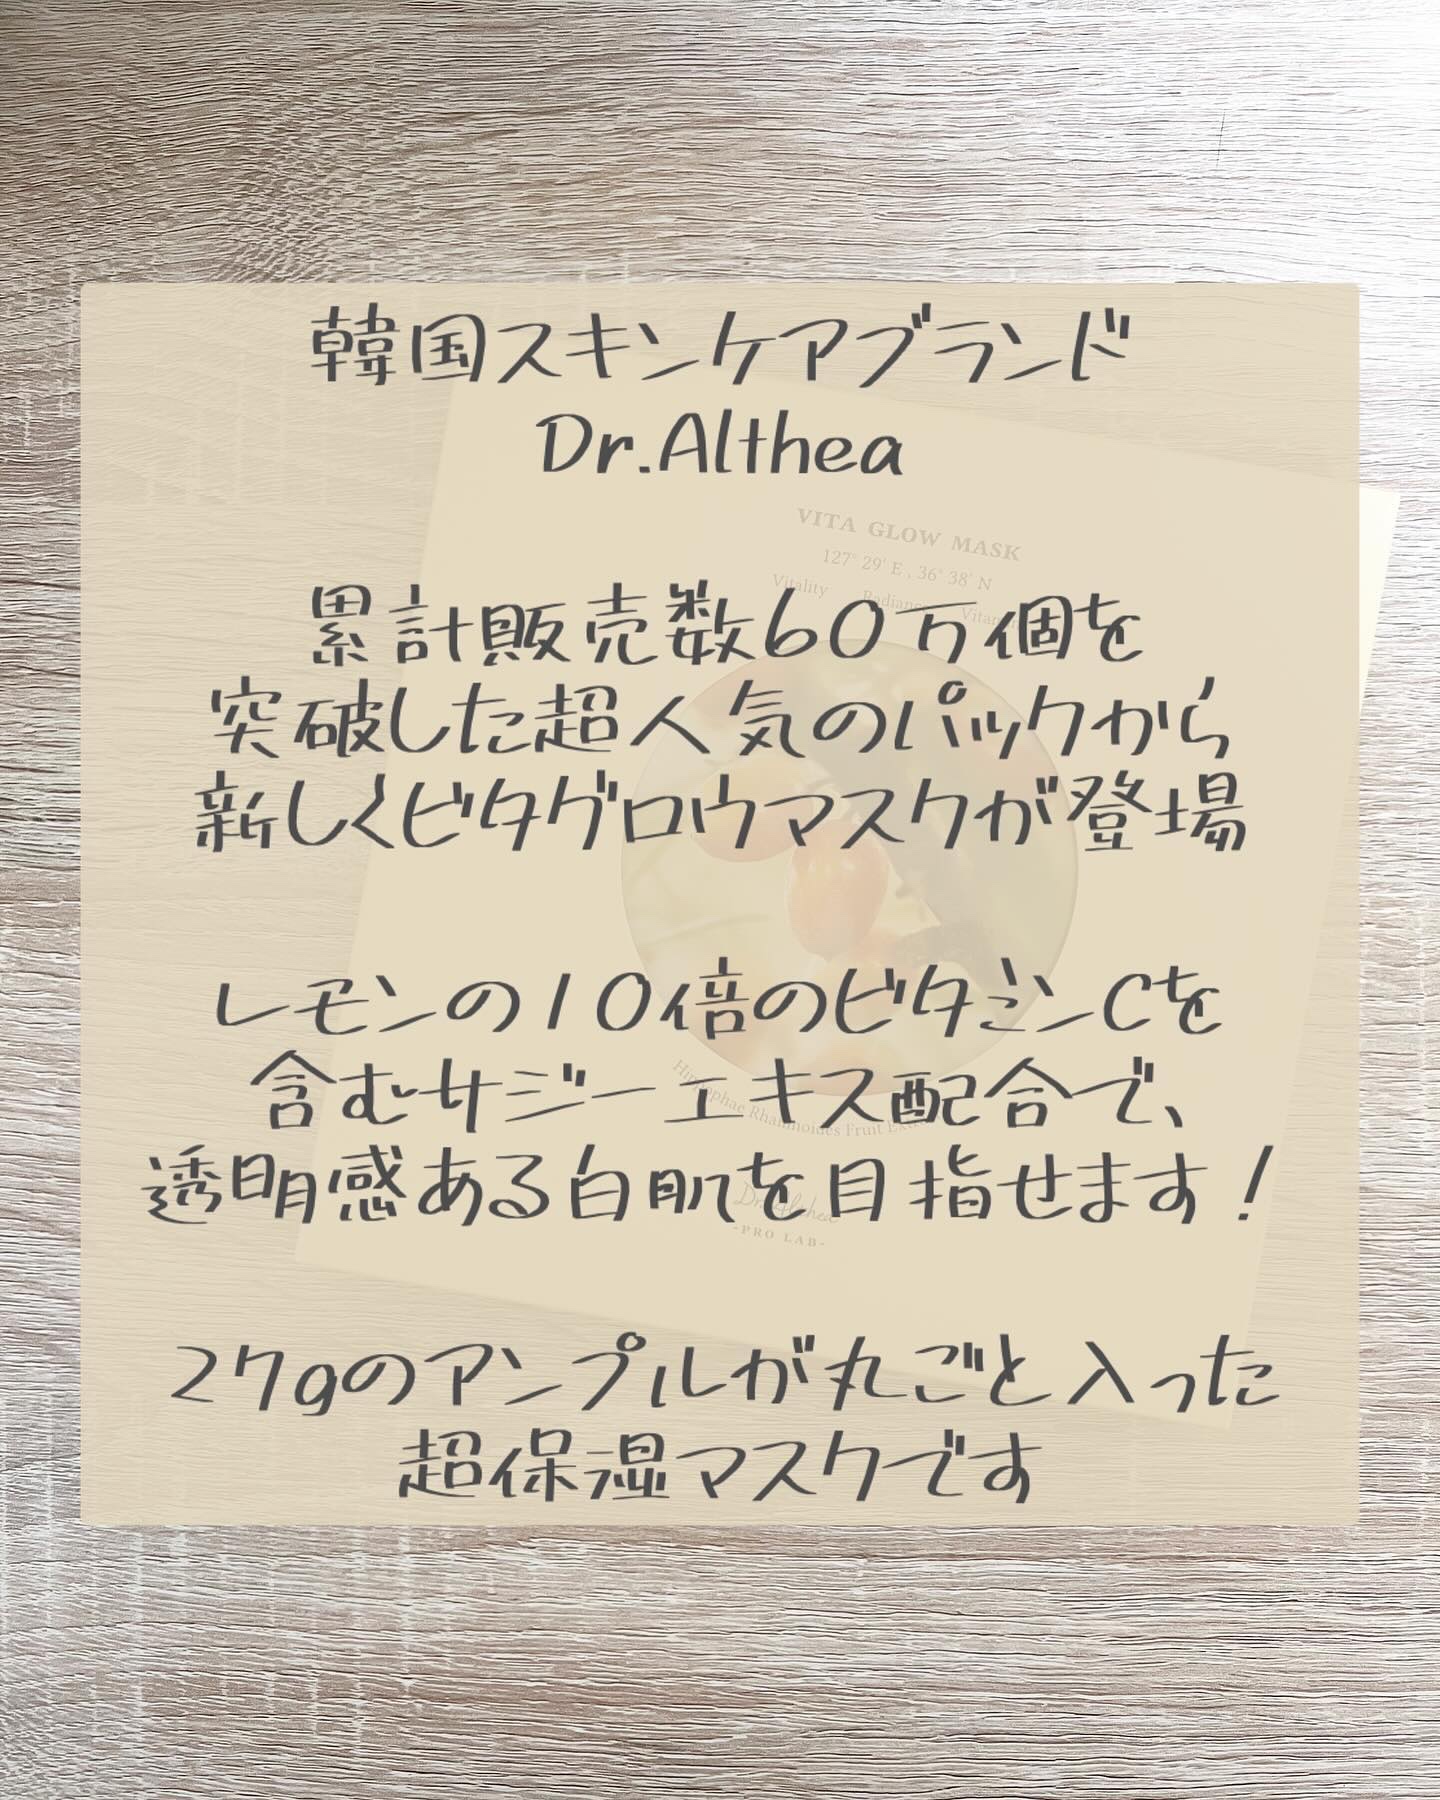 韓国スキンケアブランド
Dr.Althea
累計販売数60万個を
突破した超人気のパックから
新しくビタグロウマスクが登場
レモンの10倍のビタミンCを
含むサジーエキス配合で、
透明感ある白肌を目指せます！
27gのアンプルが丸ごと入った
超保湿マスクです
VITA GLOW MASK
127° 29' E , 36° 38' N
Vitality Radiance
Hippophae Rhamnoides Fruit
Dr. Althea
-PRO LAB-